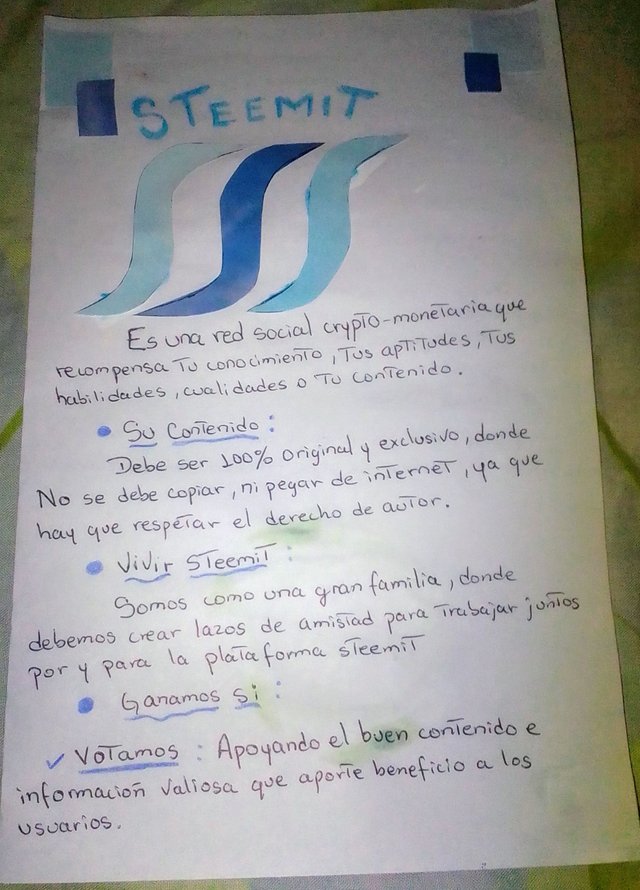 STEEMIT
Es una red social crypto-monetaria que
recompensa Tu conocimiento, Tus aptitudes, Tus
habilidades, cualidades o Tu contenido.
• Su Contenido:
Debe ser 100% original y exclusivo, donde
No se debe copiar, ni pegar de internet, ya que
hay que respetar el derecho de autor.
• Vivir Steemit:
Somos como una gran familia, donde
debemos crear lazos de amistad para Trabajar juntos
por y para la plataforma steemit
• Ganamos si:
✓ Votamos: Apoyando el buen contenido e
información valiosa que aporte beneficio a los
usuarios.